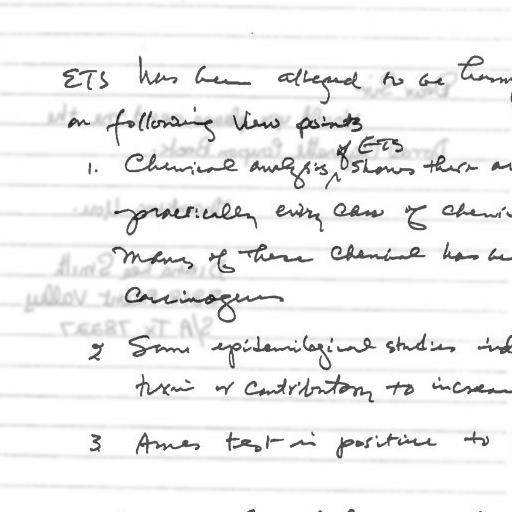 ETS has been alleged to be harm
on following view points
1. Chemical analysis of ETS shows there a
practically every case of chemi
Many of these chemical has be
Carcinogens
2 Some epidemilogical studies ind
toxin or contributory to increas
3 Ames test is positive to